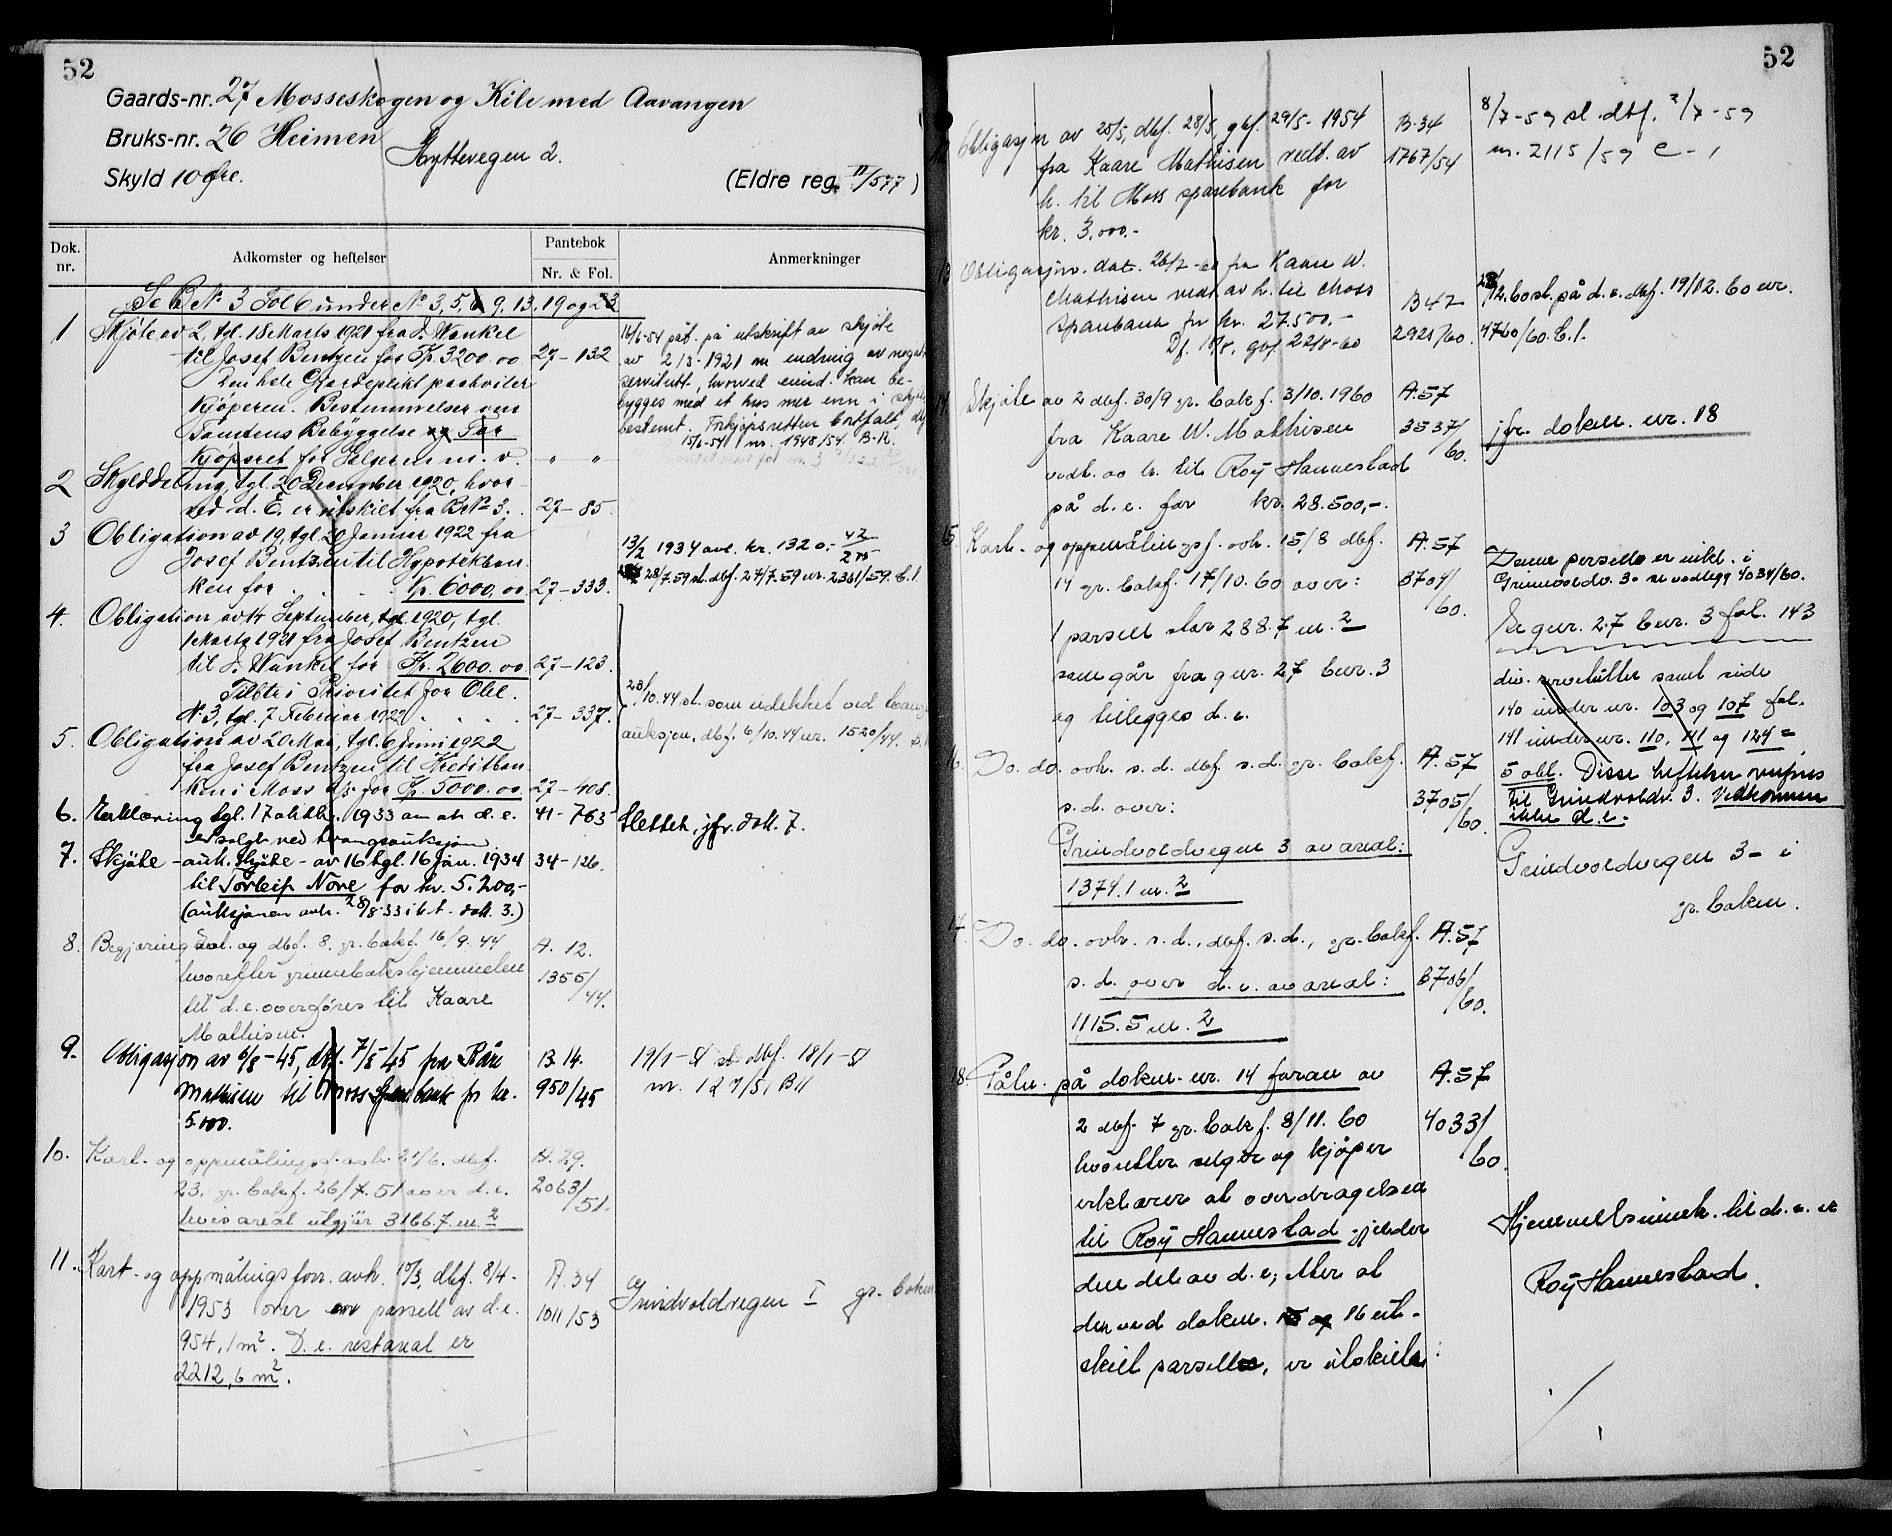 52
Gaards-nr. 27 Mosseskogen og Kile med Aavangen
Bruks-nr. 26 Heimen
Hyttevegen 2.
Skyld 10 øre.
(Eldre reg. II/577)
Dok. nr.
Adkomster og heftelser
Pantebok
Nr. & Fol.
Anmerkninger
Se B No 3 Fol 6 under No 3, 5, 6 9. 13. 19 og 23
1 Skjøte av 2, tgl. 18 Marts 1921 fra J. Wankel
til Josef Bentzen for Kr. 3200.00 27-132
Den hele Gjærdeplikt paahviler
Kjøperen. Bestemmelser om
Tomtens Bebyggelse og For
kjøpsret for Selgeren m. v. " "
2 Skylddeling, tgl. 20 December 1920, hvor
ved d. E. er utskilt fra B No 3. 27-85.
3 Obligation av 19, tgl. 20 Januar 1922 fra
Josef Bentzen til Hypotekban
ken for Kr. 6000.00 27-333.
4. Obligation av 14 September, 1920, tgl.
18 Marts 1921 fra Josef Bentzen
til J. Wankel for Kr. 2600.00. 27-123.
Tilbte i Prioritet for Obl.
No 3, tgl. 7 Februar 1922. 27-337.
5. Obligation av 20 Mai, tgl. 6 Juni 1922
fra Josef Bentzen til Kreditban
ken i Moss A/s for Kr. 5000.00. 27-408.
6. Erklæring tgl. 17 oktbr. 1933 om at d. e. 41-763
er solgt ved tvangsauksjon
7. Skjøte - auk. skjøte - av 16 tgl. 16 jan. 1934 34-126.
til Torleif Nore for kr. 5.200,-
(auksjonen avh. 28/8-33 i h.t. dok. 3.)
8. Begjæring dat. og dbf. 8. gr. bokf. 16/9. 44 A. 12.
hvoretter grunnbokshjemmelen 1355/
til d. e. overføres til Kaare 44.
Mathisen.
9. Obligasjon av 5/5-45, dbf. 7/5 45 fra Kåre B 14.
Mathisen til Moss Sparebank for kr. 950/45
5.000.
10. Kart- og oppmålingsf. avh. 21/6. dbf. A. 29.
23. gr. bokf. 26/7. 51 over d. e. 2063/
hvis areal utgjør 3166.7 m.2 51.
11. Kart- og oppmålingsforr. avh. 10/3, dbf. 8/4- A. 34
1953 over en parsell av d.e. 1011/53
954,1 m2. D. e. restareal er
2212,6 m2.
16/6-54 påt. på utskrift av skjøte
av 2/3-1921 m endring av negativ
servitutt, hvorved eiend. kan be-
bygges med et hus mer enn i skjøte
bestemt. Forkjøpsretten bortfalt, dbf
15/6-54 nr. 1948/54 B-K.
13/2 1934 avl. kr. 1320,- 42/275
28/7.59 sl. dbf. 27/7.59 nr. 2361/59. C.1
28/10.44 sl. som udekket ved tvangs
auksjon, dbf. 6/10.44 nr. 1520/44.
Slettet, jfr. dok. 7.
19/1-51 sl. dbf. 18/1-51
nr. 127/51 B11
Grindvoldvegen I gr. boken
52
12 Obligasjon av 25/5, dbf. 28/5, gbf. 29/5-1954 B-34
fra Kaare Mathisen vedt. av 1767/54
h. til Moss sparebank for
kr. 3.000.-
8/7-59 sl. dbf. 2/7-59
nr. 2115/59 C-1
13 Obligasjon. dat. 26/7-60 fra Kaare W.
Mathisen vedt av h. til Moss B 47
Sparebank for kr. 27.500,- 2921/60.
Df. 18/8, gbf. 22/8-60
28/12.60 sl. på d.e. dbf. 19/12. 60 nr.
4760/60. C.1.
14 Skjøte av 2 dbf. 30/9 gr. bokf. 3/10. 1960 A. 57
fra Kaare W. Mathisen 3537/
vedt. av h. til Roy Hannestad 60.
på d. e. for kr. 28.500,-.
jfr. dokm. nr. 18
15. Kart- og oppmålingsf. avh. 15/8 dbf. A. 57
14 gr. bokf. 17/10. 60 over: 3704/
1 parsell stor 288.7 m.2 60.
som går fra gnr. 27 bnr. 3
og tillegges d. e.
Denne parsell er inkl. i
Grindvoldv. 3. se vedlegg 4034/60.
Se gnr. 27 bnr. 3 fol. 143
div. servitutter samt side
140 under nr. 103 og 107 fol.
141 under nr. 110, 111 og 124 =
5 obl. Disse heftelser overføres
til Grindvoldv. 3. Vedkommer
ikke d. e.
16. Do. do. avh. s. d. dbf. s. d. gr. bokf. A. 57
s. d. over: 3705/
Grindvoldvegen 3 av areal: 60.
1374.1 m.2
Grindvoldvegen 3- i
gr. boken.
17. Do. do. avh. s. d., dbf. s. d., gr. bokf. A. 57
s. d. over d. e. av areal: 3706/
1115.5 m.2 60.
18. Påtn. på dokm. nr. 14 foran av A. 57
2 dbf. 7 gr. bokf. 8/11. 60 4033/
hvoretter selger og kjøper 60.
erklærer at overdragelsen
til Roy Hannestad gjelder
den del av d. e., etter at
den ved dokm. 15 og 16 ut-
skilt parsell, er utskilt.
Hjemmelsinneh. til d. e. er
Roy Hannestad.